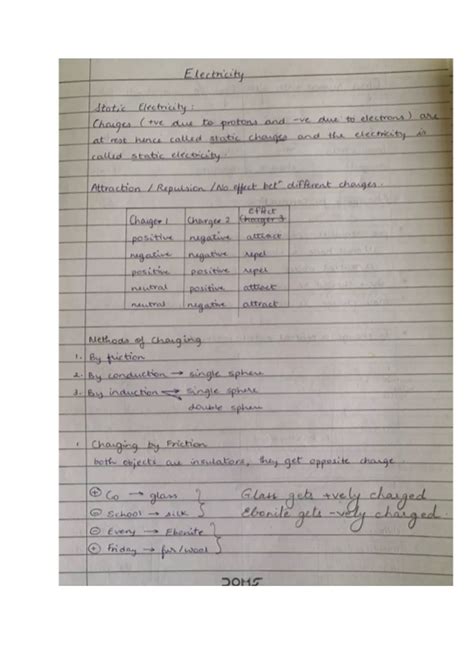 Electricity
Static Electricity :
Charges (+ve due to protons and -ve due to electrons) are
at rest hence called static charges and the electricity is
called static electricity.
Attraction / Repulsion / No effect betn different charges.
Charge 1 Charge 2 Effect
positive negative attract
negative negative repel
positive positive repel
neutral positive attract
neutral negative attract
Methods of Charging
1. By friction
2. By conduction → single sphere
3. By induction → single sphere
double sphere
1 Charging by Friction
both objects are insulators, they get opposite charge
⊕ Co → glass } Glass gets +vely charged
⊖ School → silk } Ebonite gets -vely charged.
⊖ Every → Ebonite }
⊕ Friday → fur/wool }
DOMS